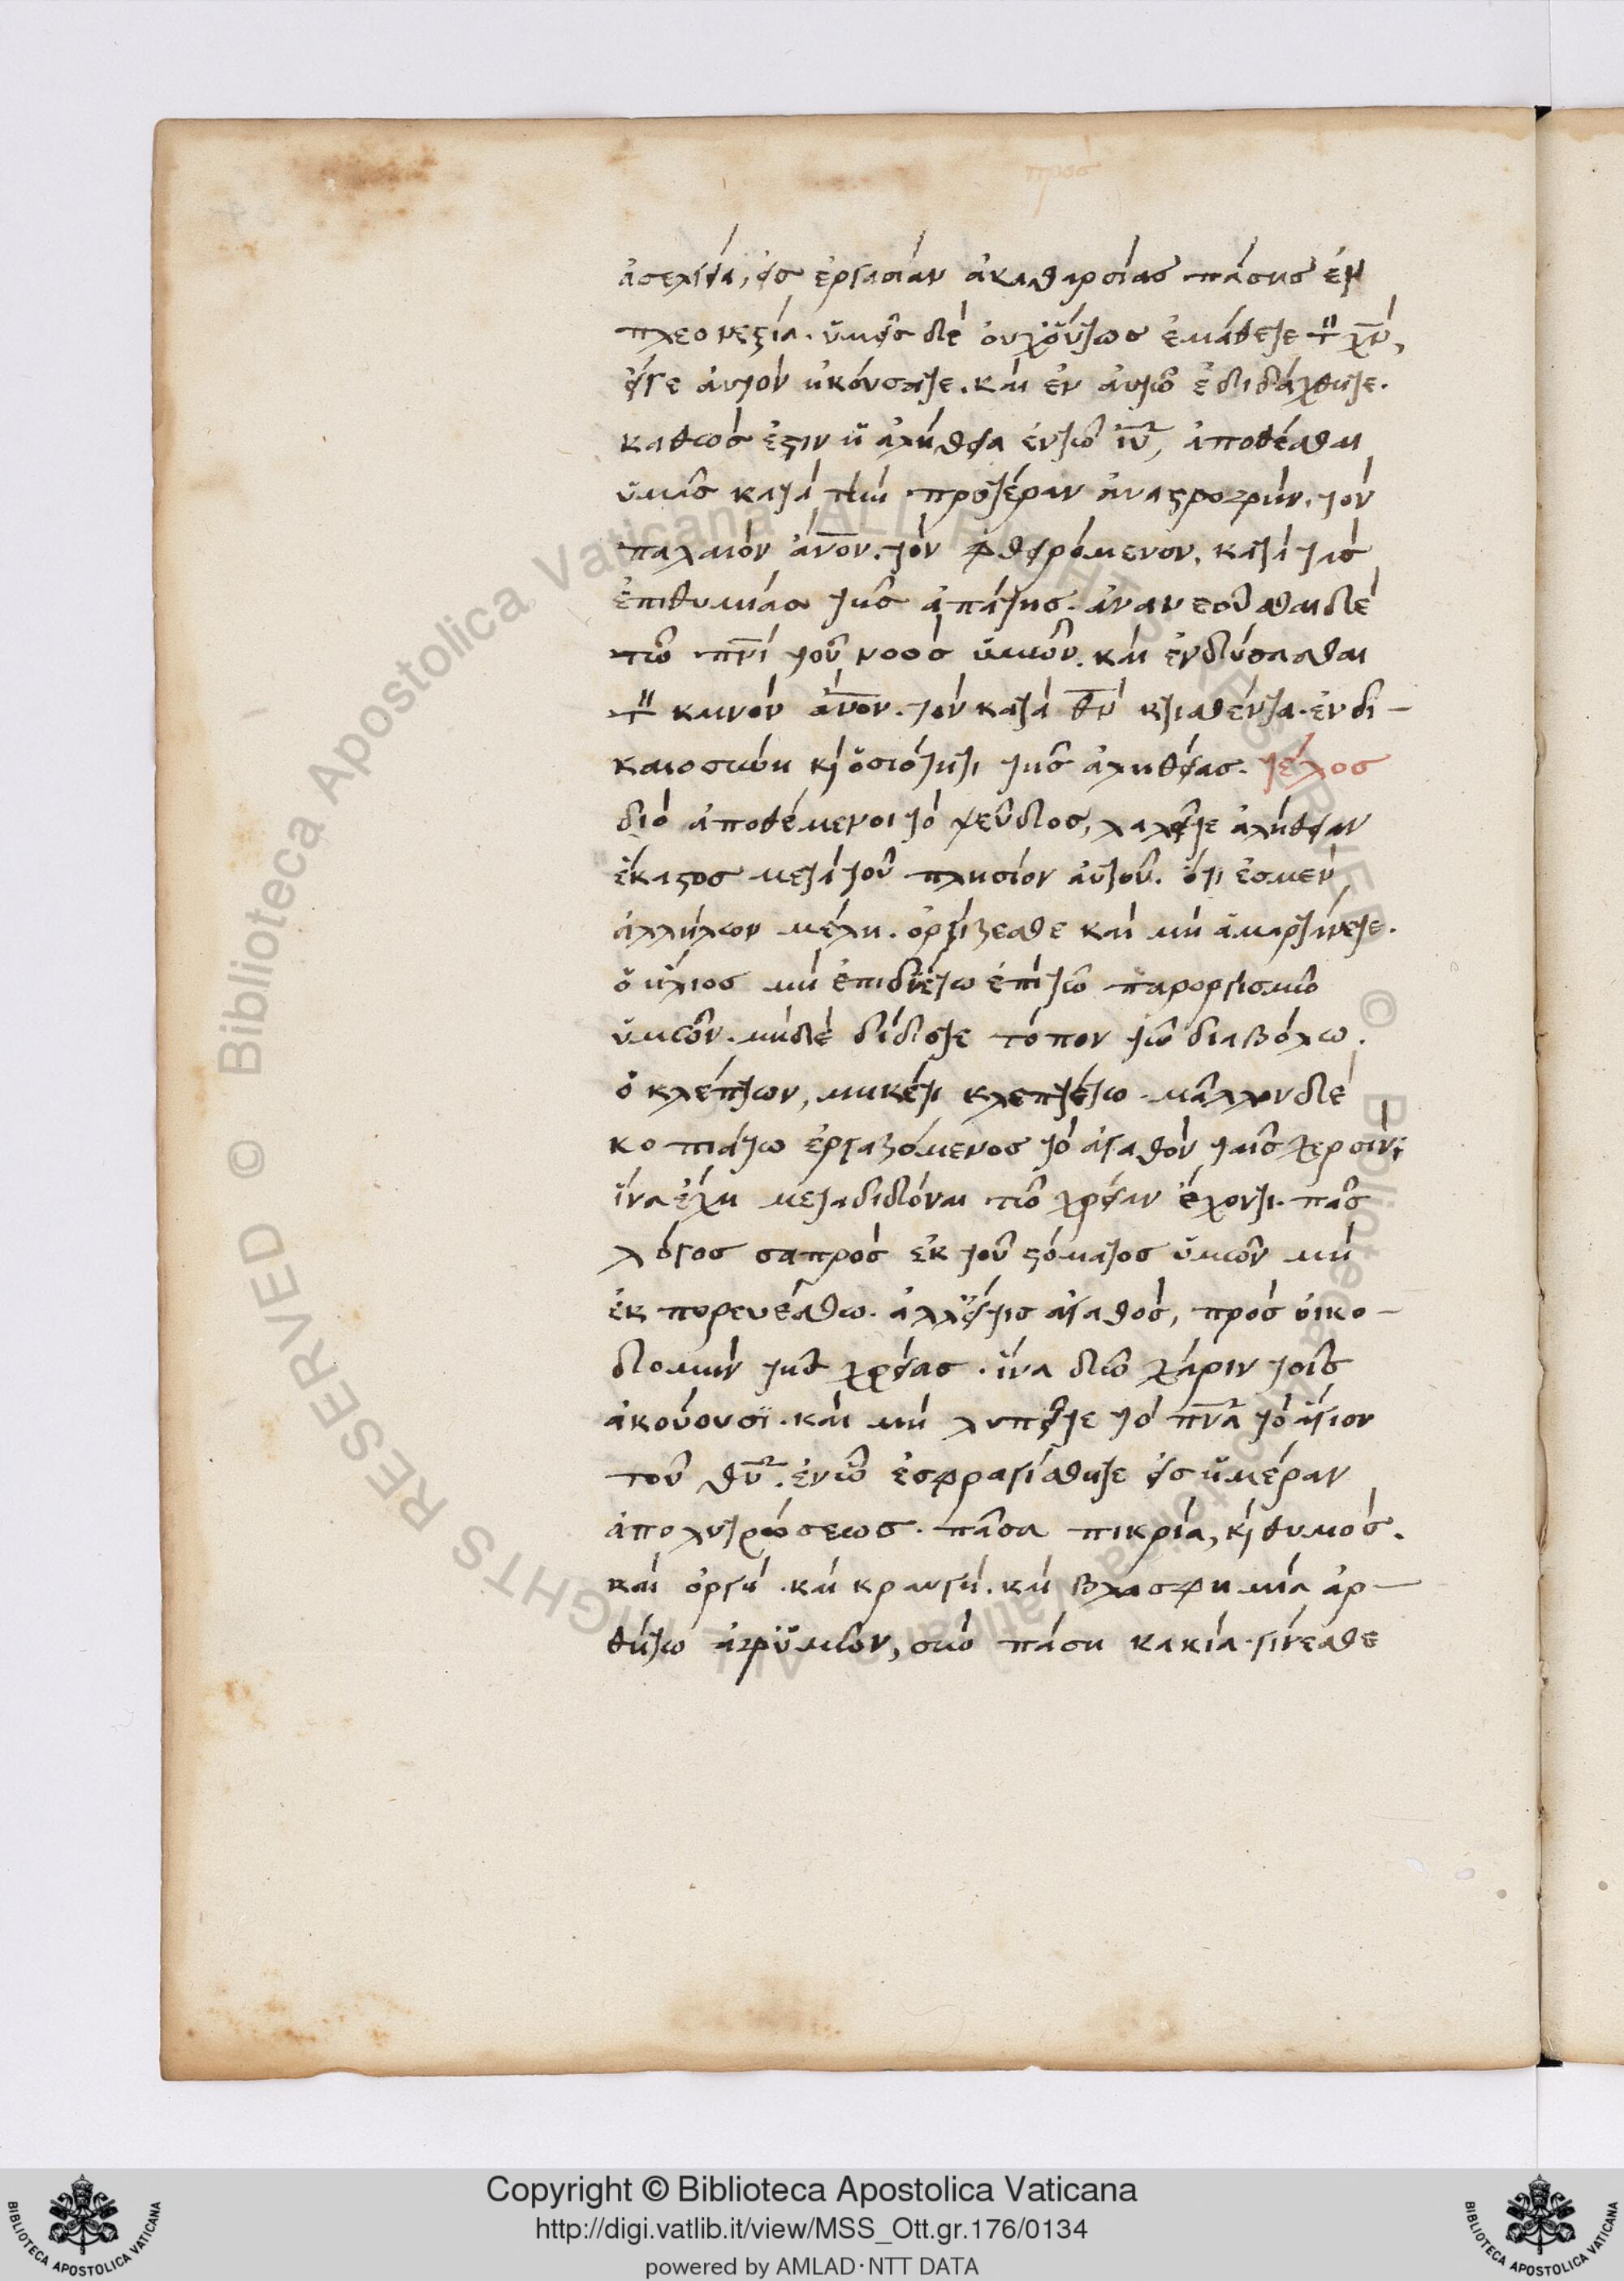 ἀσελγεία, εἰς ἐργασίαν ἀκαθαρσίας πάσης ἐν
πλεονεξία. ὑμεῖς δὲ οὐχ οὕτως ἐμάθετε τὸν χν̄,
εἴγε αὐτὸν ἠκούσατε. καὶ ἐν αὐτῶ ἐδιδάχθητε.
καθώς ἐστιν ἡ ἀλήθεια ἐν τῶ ιῡ, ἀποθέσθαι
ὑμᾶς κατὰ τὴν προτέραν ἀναστροφὴν. τὸν
παλαιὸν ἀν̄ον. τὸν φθειρόμενον. κατὰ τὰς
ἐπιθυμίας τῆς ἀπάτης. ἀνανεοῦσθαι δὲ
τῶ πνῑ τοῦ νοὸς ὑμῶν. καὶ ἐνδύσασθαι
τὸν καινὸν ἀν̄ον. τὸν κατὰ θν̄ κτισθέντα. ἐν δι-
καιοσύνη κὶ ὁσιότητι τῆς ἀληθείας. τέλος
διὸ ἀποθέμενοι τὸ ψεῦδος, λαλεῖτε ἀλήθειαν
ἕκαστος μετὰ τοῦ πλησίον αὐτοῦ. ὅτι ἐσμὲν
ἀλλήλων μέλη. ὀργίζεσθε καὶ μὴ ἁμαρτάνετε.
ὁ ἥλιος μὴ ἐπιδυέτω ἐπὶ τῶ παροργισμῶ
ὑμῶν. μηδὲ δίδοτε τόπον τῶ διαβόλω.
ὁ κλέπτων, μηκέτι κλεπτέτω. μᾶλλον δὲ
κοπιάτω ἐργαζόμενος τὸ ἀγαθὸν ταῖς χερσὶν;
ἵνα ἔχη μεταδιδόναι τῶ χρείαν ἔχοντι. πᾶς
λόγος σαπρὸς ἐκ τοῦ στόματος ὑμῶν μὴ
ἐκπορευέσθω. ἀλλ' εἴ τις ἀγαθὸς, πρὸς οἰκο-
δομὴν τῆς χρείας. ἵνα δῶ χάριν τοῖς
ἀκούουσϊ. καὶ μὴ λυπεῖτε τὸ πνᾱ τὸ ἅγιον
τοῦ θῡ. ἐν ὧ ἐσφραγίσθητε εἰς ἡμέραν
ἀπολυτρώσεως. πᾶσα πικρία, κὶ θυμὸς.
καὶ ὀργὴ. καὶ κραυγὴ. καὶ βλασφημία ἀρ-
θήτω ἀφ' ὑμῶν, σὺν πάση κακία. γίνεσθε
Copyright © Biblioteca Apostolica Vaticana
http://digi.vatlib.it/view/MSS_Ott.gr.176/0134
powered by AMLAD·NTT DATA
BIBLIOTECA APOSTOLICA VATICANA
BIBLIOTECA APOSTOLICA VATICANA
© Biblioteca Apostolica Vaticana ALL RIGHTS RESERVED © Biblioteca Apostolica Vaticana ALL RIGHTS RESERVED